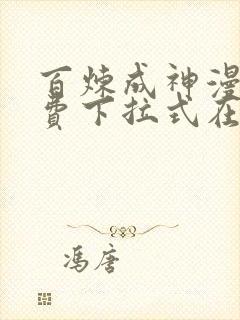 百炼成神漫
费下拉式在
冯唐